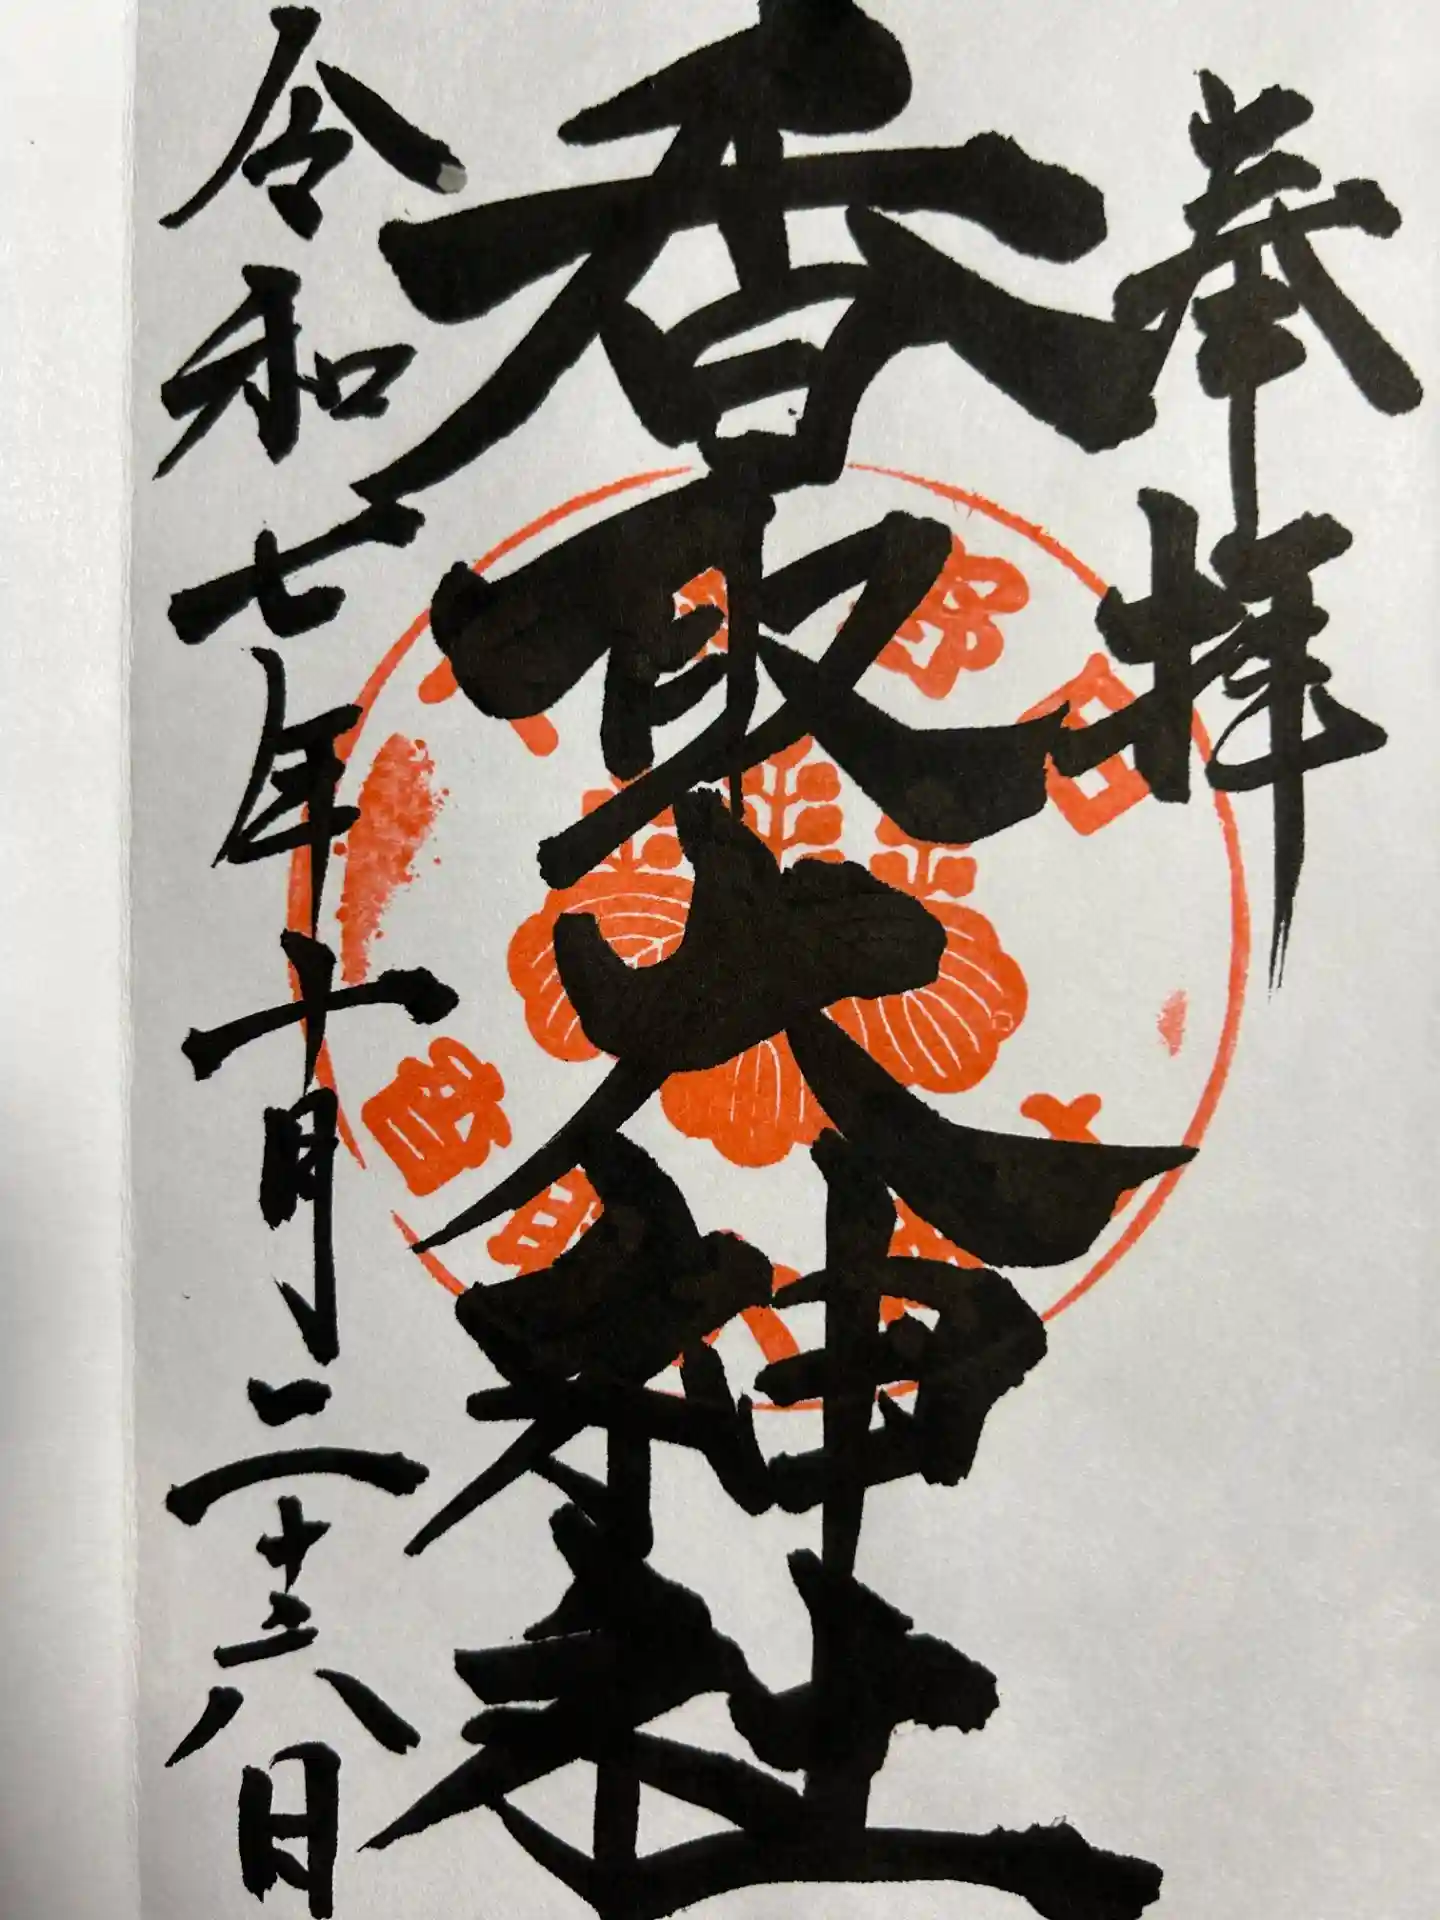 奉拝
香取大神社
令和七年十月二十八日